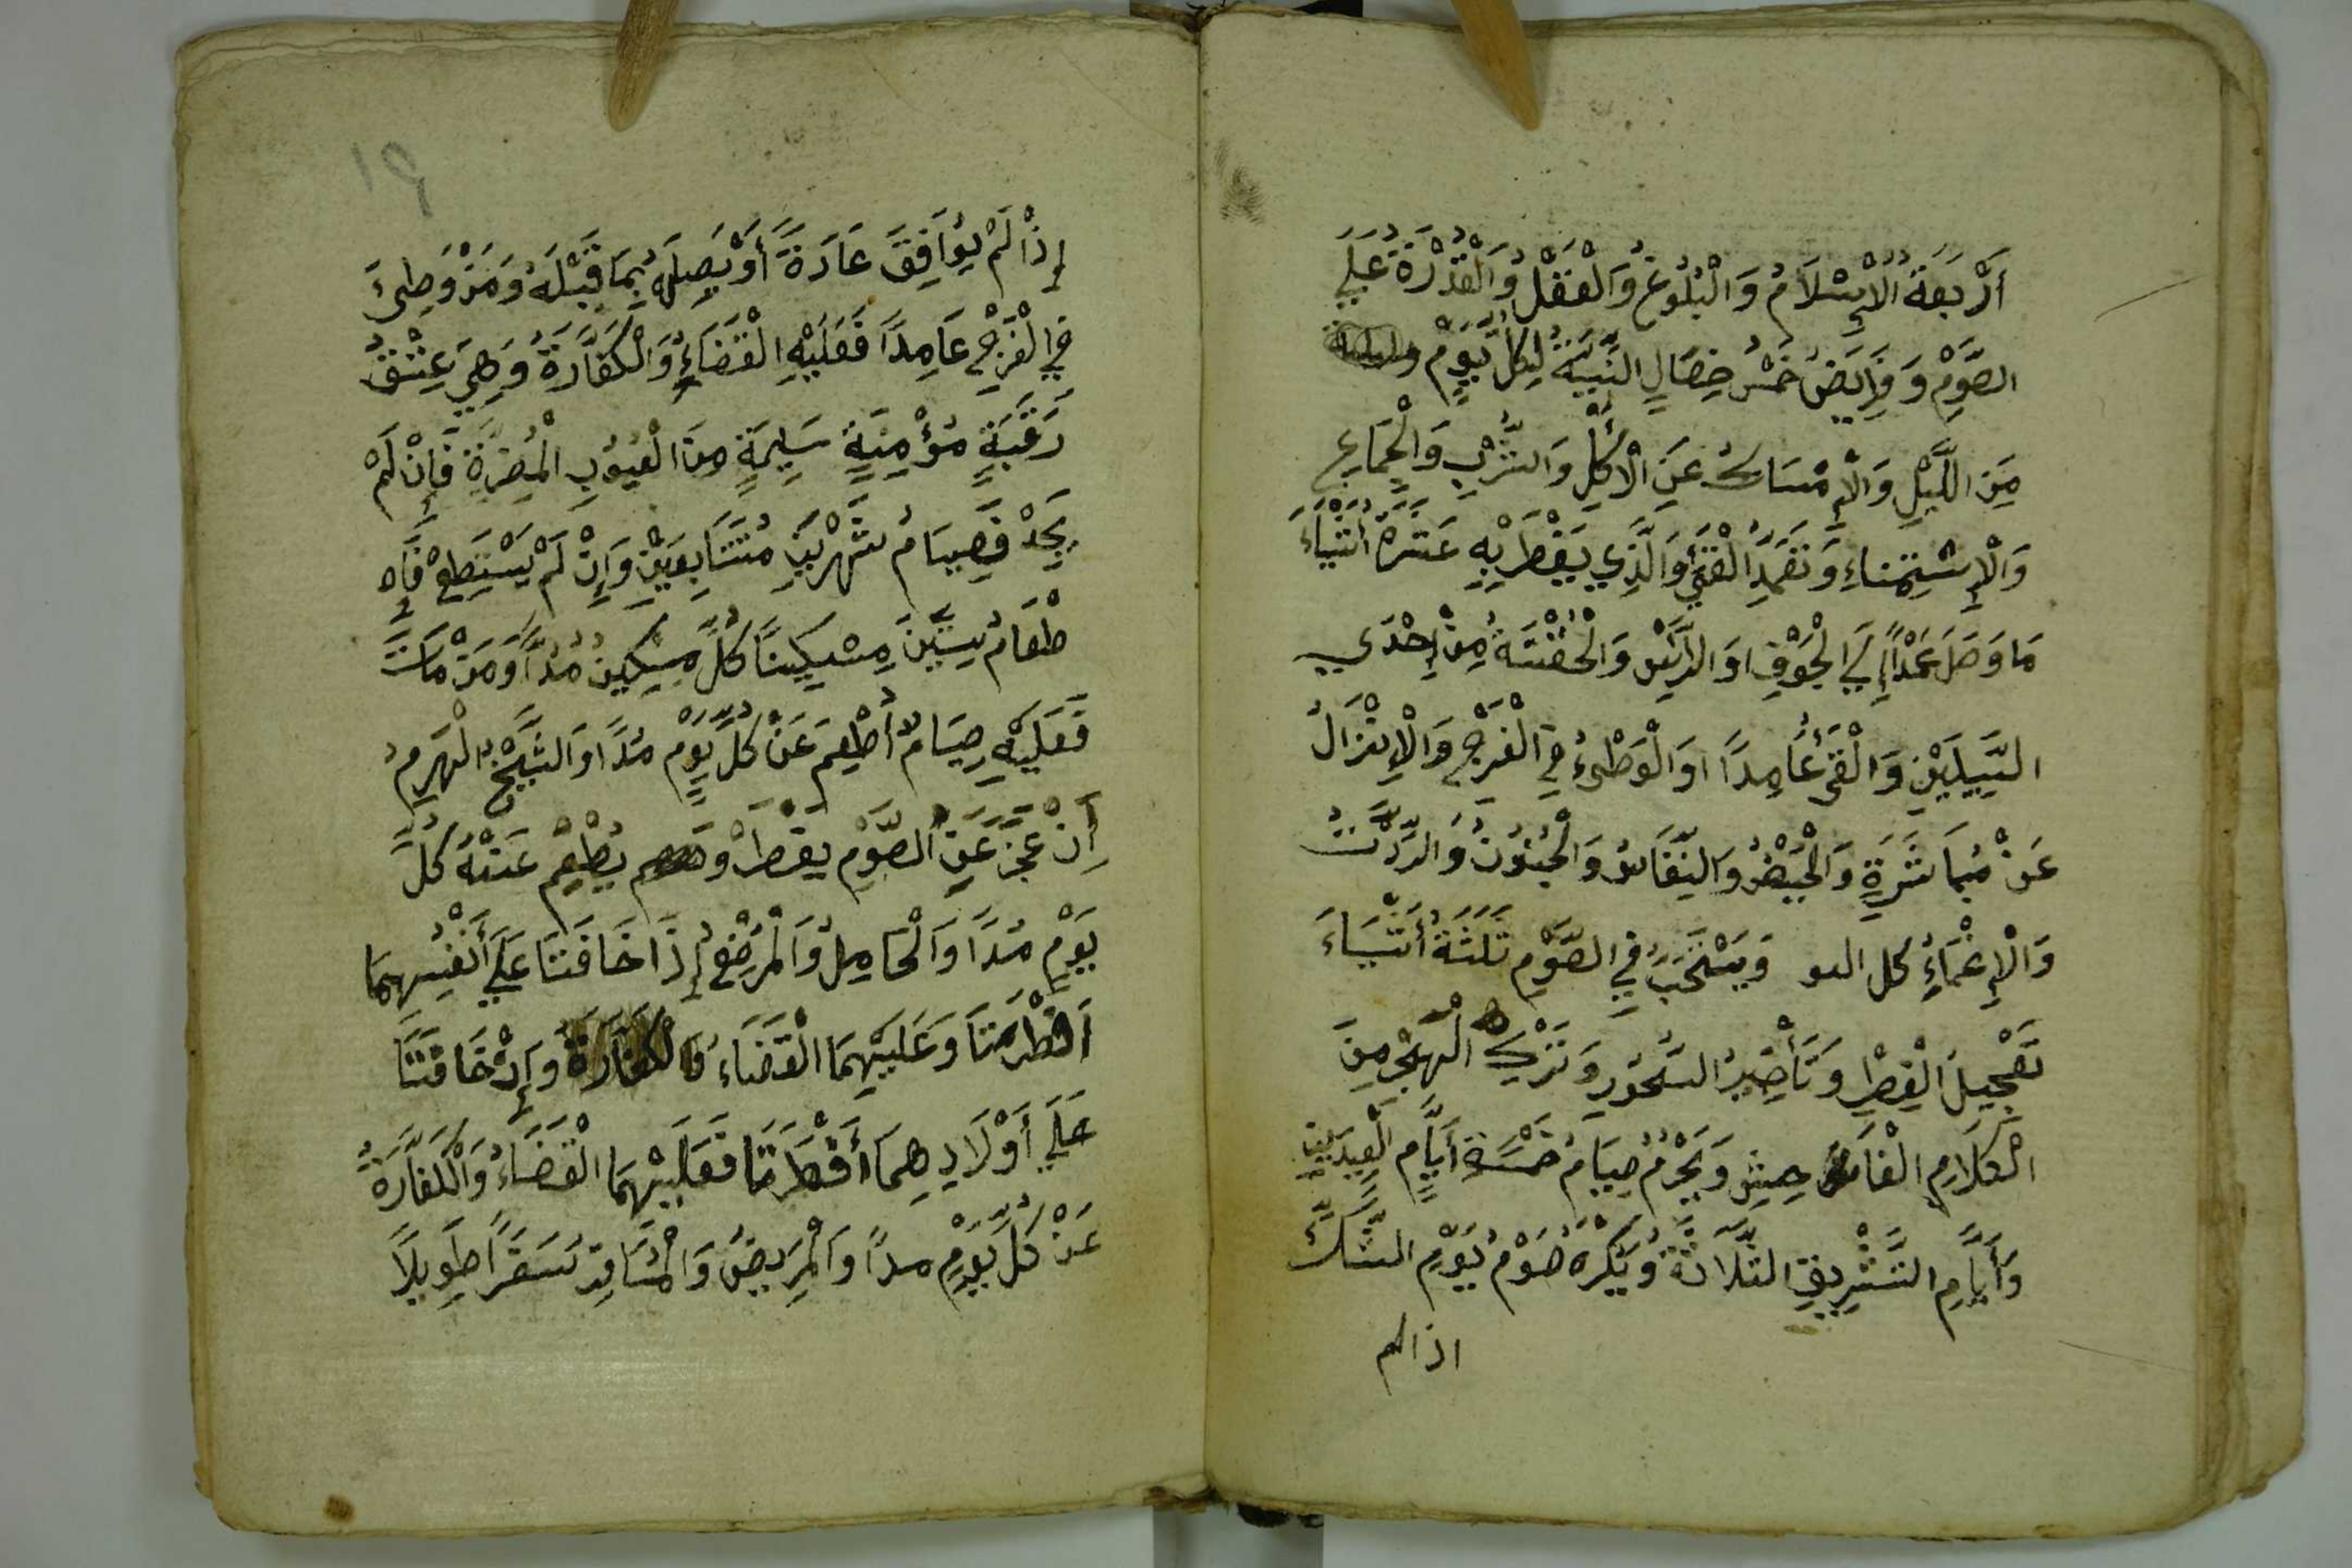 أَرْبَعَةُ الْإِسْلَامُ وَالْبُلُوغُ وَالْعَقْلُ وَالْقُدْرَةُ عَلَي
الصَّوْمِ وَفَرَايَضُ خَمْسُ خِصَالٍ النِّيَّةُ لِكُلِّ يَوْمٍ
مِنَ اللَّيْلِ وَالْإِمْسَاكُ عَنِ الْأَكْلِ وَالشُّرْبِ وَالْجِمَاعِ
وَالْإِسْتِمْنَاءِ وَتَعَمُّدُ الْقَيْءِ وَالَّذِي يَفْطَرُ بِهِ عَشَرَةُ أَشْيَاءَ
مَا وَصَلَ عَمْدًا إِلَي الْجَوْفِ اوَ الرَّأْسِ وَالْحُقْنَةُ مِنْ إِحْدَي
السَّبِيلَيْنِ وَالْقَيْءُ عَامِدًا اوَ الْوَطْىءُ فِي الْفَرْجِ وَالْإِنْزَالُ
عَنْ مُبَاشَرَةٍ وَالْحَيْضُ وَالنِّفَاسُ وَالْجُنُونُ وَالرِّدَّتُ
وَالْإِغْمَاءُ كل اليو وَيَسْتَحَبُّ فِي الصَّوْمِ ثَلَثَةُ أَشْيَاءَ
تَعْجِيلُ الْفِطْرِ وَتَأْخِيرُ السُّحُورِ وَتَرْكِ الْهَجْرِ مِنَ
الْكَلَامِ الْفَاحش وَيَحْرُمُ صِيَامُ خَمْسَةِ أَيَّامٍ الْعِيدَيْنِ
وَأَيَّامِ التَّشْرِيقِ الثَّلَاثَةُ وَيُكْرَهُ صَوْمُ يَوْمِ الشَّكِّ
اذا لم
١٩
إِذَا لَمْ يُوَافِقَ عَادَةً أَوْ يَصِلَهُ بِمَا قَبْلَهُ وَمَنْ وَطِىءَ
فِي الْفَرْجِ عَامِدًا فَعَلَيْهِ الْقَضَاءُ وَالْكَفَّارَةُ وَهِيَ عِتْقُ
رَقَبَةٍ مُؤْمِنَةٍ سَلِيمَةٍ مِنَ الْعُيُوبِ الْمُضِرَّةِ فَإِنْ لَمْ
يَجِدْ فَصِيَامُ شَهْرَيْنِ مُتَتَابِعَيْنِ وَإِنْ لَمْ يَسْتَطِعْ فَإ
طْعَامُ سِتِّينَ مِسْكِينًا كُلِّ مِسْكِينٍ مُدًّا وَمَنْ مَاتَ
فَعَلَيْهِ صِيَامٌ أُطْعِمَ عَنْ كُلِّ يَوْمٍ مُدًّا وَالشَّيْخُ الْهَرِمُ
إِنْ عَجَزَ عَنِ الصَّوْمِ يَفْطَرْ وَ يُطْعِمْ عَنْهُ كُلَّ
يَوْمٍ مُدًّا وَالْحَامِلُ وَالْمُرْضِعُ إِذَا خَافَتَا عَلَي أَنْفُسِهِمَا
اَفْطَرَتَا وَعَلَيْهِمَا الْقَضَاءُ وَالْكَفَّارَةُ وَإِنْ خَافَتَا
عَلَي أَوْلَادِهِمَا أَفْطَرَتَا فَعَلَيْهِمَا الْقَضَاءُ وَالْكَفَّارَةُ
عَنْ كُلِّ يَوْمٍ مدًا وَالْمَرِيضُ وَالْمُسَافِرُ سَفَرًا طَوِيلًا